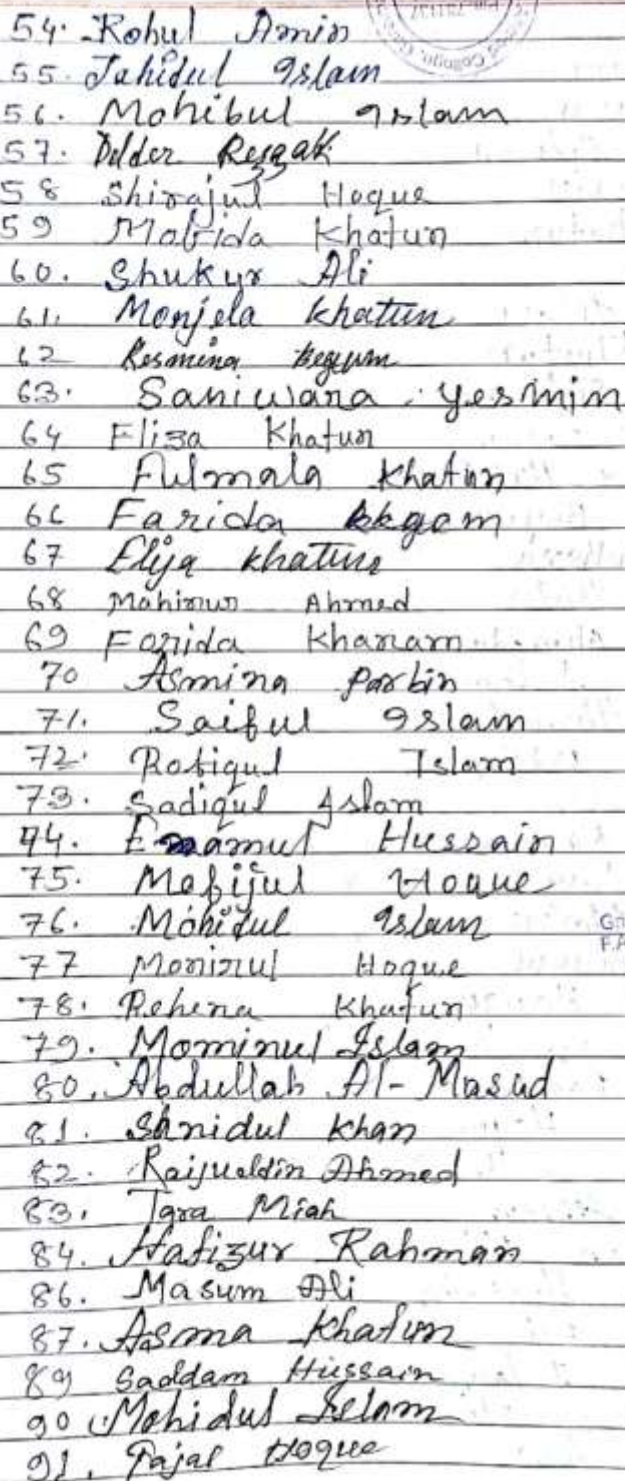 54. Rohul Amin
55. Jahidul Islam
56. Mohibul Islam
57. Delder Rezzak
58 Shirajul Hoque
59 Mofida Khatun
60. Shukur Ali
61. Monjela Khatun
62 Resmina Begum
63. Saniwara Yesmin
64 Eliza Khatun
65 Fulmala Khatun
66 Farida
67 Elija Khatun
68 Mahinur Ahmed
69 Forida Khanam
70 Asmina Parbin
71. Saiful Islam
72. Rofiqul Islam
73. Sadiqul Islam
74. Enamul Hussain
75. Mofijul Hoque
76. Mohidul Islam
77 Monirul Hoque
78. Rehena Khatun
79. Mominul Islam
80. Abdullah Al-Masud
81. Shahidul Khan
82. Raijueldin Ahmed
83. Tara Miah
84. Hafizur Rahman
86. Masum Ali
87. Asma Khatun
89 Saddam Hussain
90. Mohidul Islam
91. Fajal Hoque